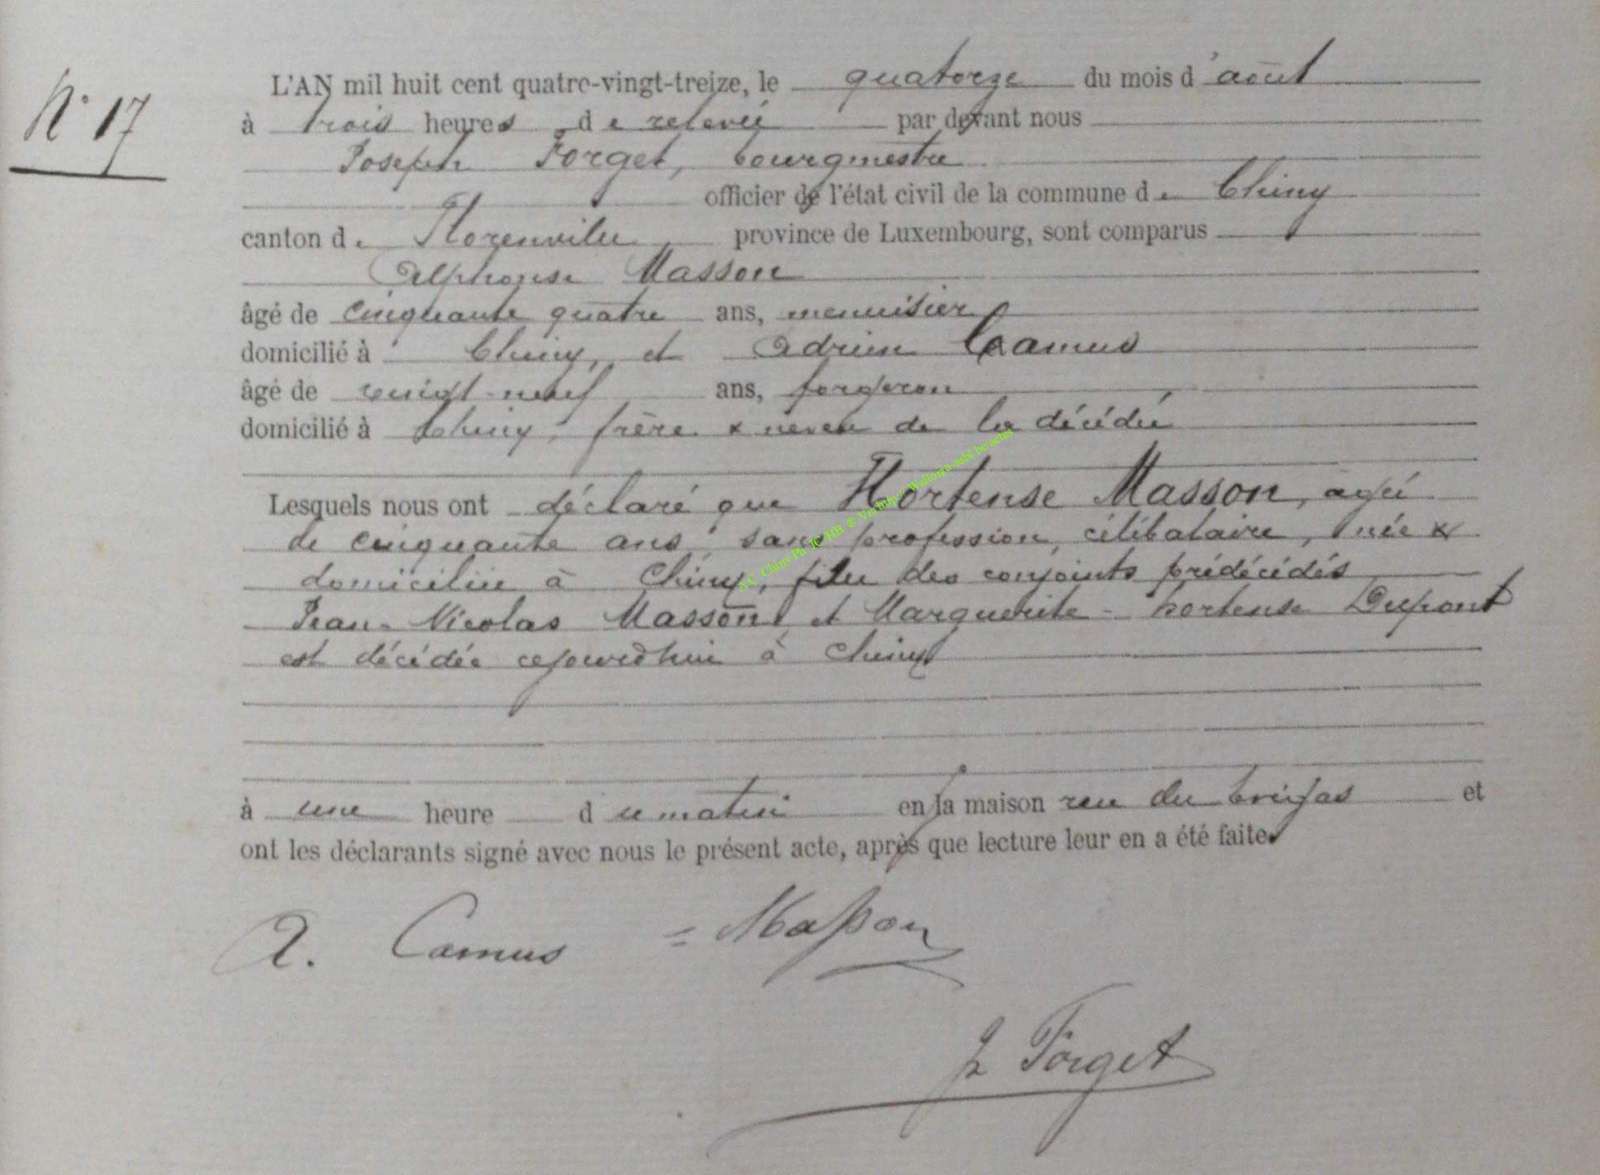 N° 17
L'AN mil huit cent quatre-vingt-treize, le quatorze du mois d'août
à trois heures de relevée par devant nous
Joseph Forget, bourgmestre
officier de l'état civil de la commune de Chiny
canton de Florenville province de Luxembourg, sont comparus
Alphonse Masson
âgé de cinquante quatre ans, menuisier
domicilié à Chiny, et Adrien Camus
âgé de vingt-neuf ans, forgeron
domicilié à Chiny, frère & neveu de la décédée
Lesquels nous ont déclaré que Hortense Masson, agée
de cinquante ans, sans profession, célibataire, née &
domiciliée à Chiny, fille des conjoints prédécédés
Jean-Nicolas Masson et Marguerite-hortense Dupont
est décédée cejourd'hui à Chiny
à une heure du matin en la maison rue du et
ont les déclarants signé avec nous le présent acte, après que lecture leur en a été faite.
A. Camus = Masson
J Forget